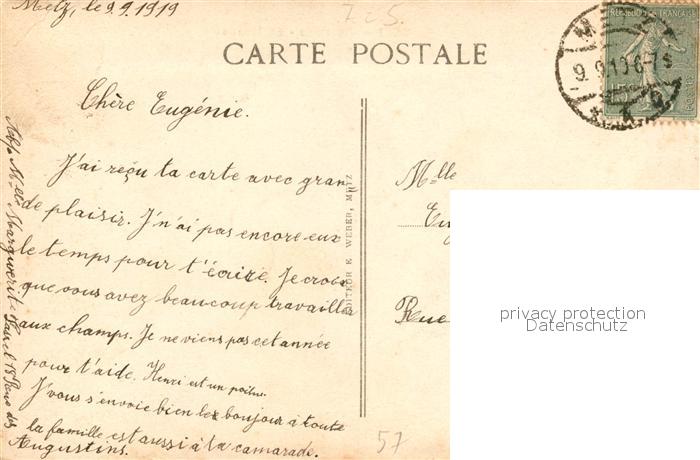 Metz, le 9.9.1919
CARTE POSTALE
REPUBLIQUE FRANÇAISE
9. 9. 19 6-7 S
Chère Eugénie.
J'ai reçu ta carte avec gran
de plaisir. J'n'ai pas encore eux
le temps pour t'écrire. Je crois
que vous avez beaucoup travailler
aux champs. Je ne viens pas cet année
pour t'aide. Henri est un poilu.
J'vous s'envoie bien les boujour à toute
la famille est aussi à la camarade.
Abs. Mlle Marguerite 18 Rue des
Augustins.
EDITEUR E. WEBER, METZ
Mlle
Eu
Rue
57
privacy protection
Datenschutz